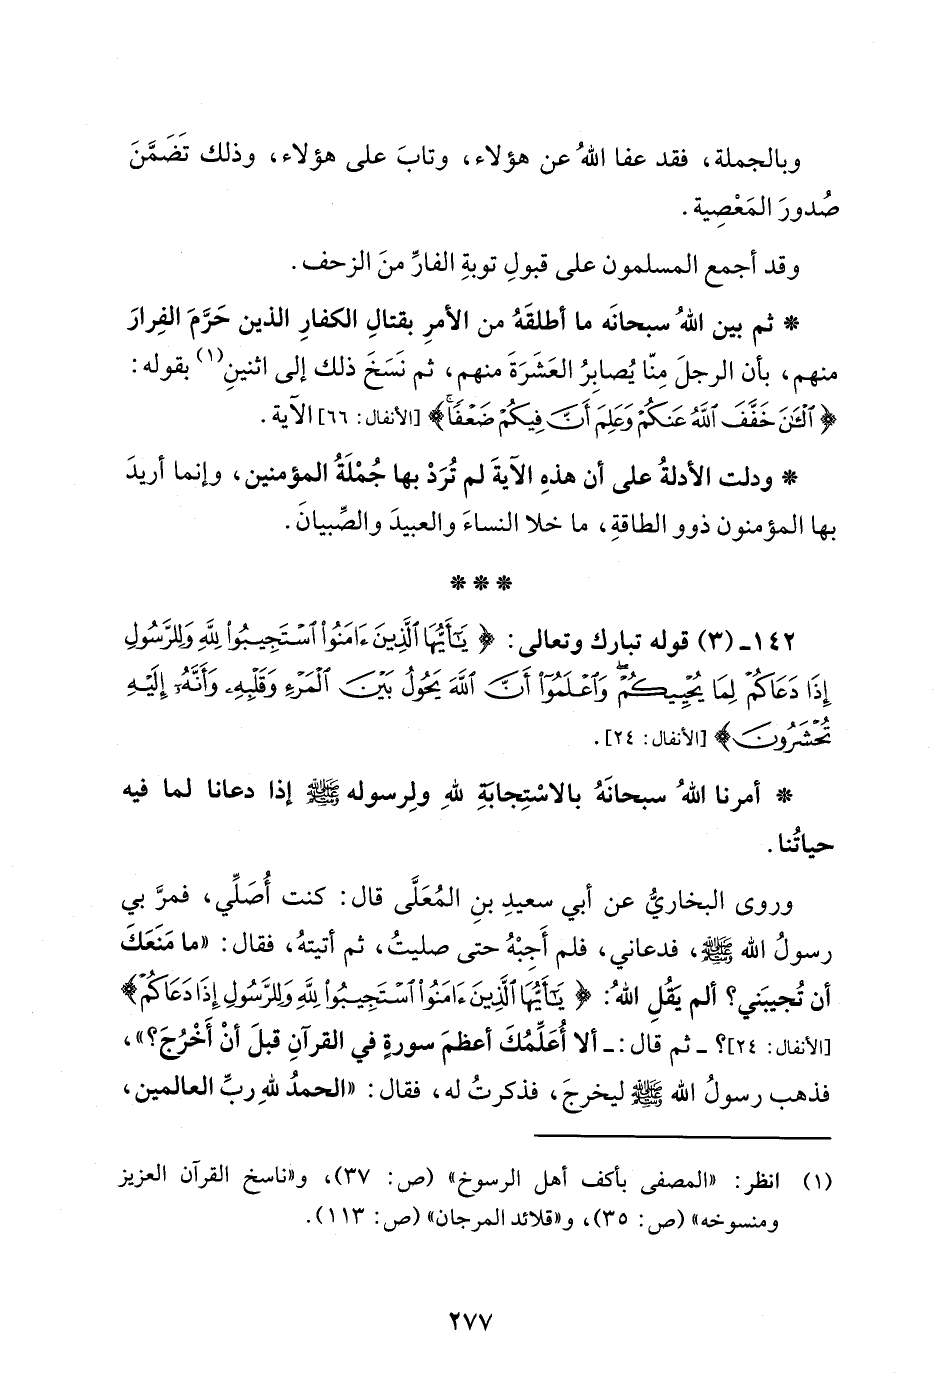 وبالجملة، فقد عفا اللهُ عن هؤلاء، وتابَ على هؤلاء، وذلك تَضَمَّنَ
صُدورَ المَعْصِية.
وقد أجمع المسلمون على قبولِ توبةِ الفارِّ منَ الزحف.
* ثم بين اللهُ سبحانَه ما أطلقَهُ من الأمرِ بقتالِ الكفارِ الذين حَرَّمَ الفِرارَ
منهم، بأن الرجلَ مِنّا يُصابِرُ العَشَرَةَ منهم، ثم نَسَخَ ذلك إلى اثنينِ(١) بقوله:
﴿ٱلْـَٰٔنَ خَفَّفَ ٱللَّهُ عَنكُمْ وَعَلِمَ أَنَّ فِيكُمْ ضَعْفًا﴾ [الأنفال: ٦٦] الآية.
* ودلت الأدلةُ على أن هذهِ الآيةَ لم تُرَدْ بها جُمْلَةُ المؤمنين، وإنما أريدَ
بها المؤمنون ذوو الطاقةِ، ما خلا النساءَ والعبيدَ والصِّبيانَ.
***
١٤٢ـ (٣) قوله تبارك وتعالى: ﴿يَٰٓأَيُّهَا ٱلَّذِينَ ءَامَنُوا۟ ٱسْتَجِيبُوا۟ لِلَّهِ وَلِلرَّسُولِ
إِذَا دَعَاكُمْ لِمَا يُحْيِيكُمْ ۖ وَٱعْلَمُوٓا۟ أَنَّ ٱللَّهَ يَحُولُ بَيْنَ ٱلْمَرْءِ وَقَلْبِهِۦ وَأَنَّهُۥٓ إِلَيْهِ
تُحْشَرُونَ﴾ [الأنفال: ٢٤].
* أمرنا اللهُ سبحانَهُ بالاسْتِجابَةِ للهِ ولِرسوله ﷺ إذا دعانا لما فيه
حياتُنا.
وروى البخاريُّ عن أبي سعيدِ بنِ المُعَلَّى قال: كنت أُصَلِّي، فمرَّ بي
رسولُ الله ﷺ، فدعاني، فلم أَجِبْهُ حتى صليتُ، ثم أتيتهُ، فقال: «ما مَنَعَكَ
أن تُجيبَني؟ ألم يَقُلِ اللهُ: ﴿يَٰٓأَيُّهَا ٱلَّذِينَ ءَامَنُوا۟ ٱسْتَجِيبُوا۟ لِلَّهِ وَلِلرَّسُولِ إِذَا دَعَاكُمْ﴾
[الأنفال: ٢٤]؟ ـ ثم قال: ـ ألا أُعَلِّمُكَ أعظمَ سورةٍ في القرآنِ قبلَ أنْ أَخْرُجَ؟»،
فذهب رسولُ الله ﷺ ليخرجَ، فذكرتُ له، فقال: «الحمدُ للهِ ربِّ العالمين،
(١) انظر: «المصفى بأكف أهل الرسوخ» (ص: ٣٧)، و«ناسخ القرآن العزيز
ومنسوخه» (ص: ٣٥)، و«قلائد المرجان» (ص: ١١٣).
٢٧٧